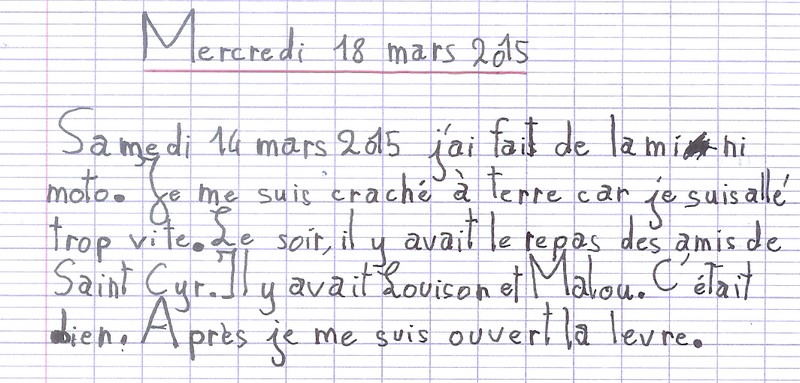 Mercredi 18 mars 2015
Samedi 14 mars 2015 j'ai fait de la mini
moto. Je me suis craché à terre car je suis allé
trop vite. Le soir, il y avait le repas des amis de
Saint Cyr. Il y avait Louison et Malou. C'était
bien. Après je me suis ouvert la levre.